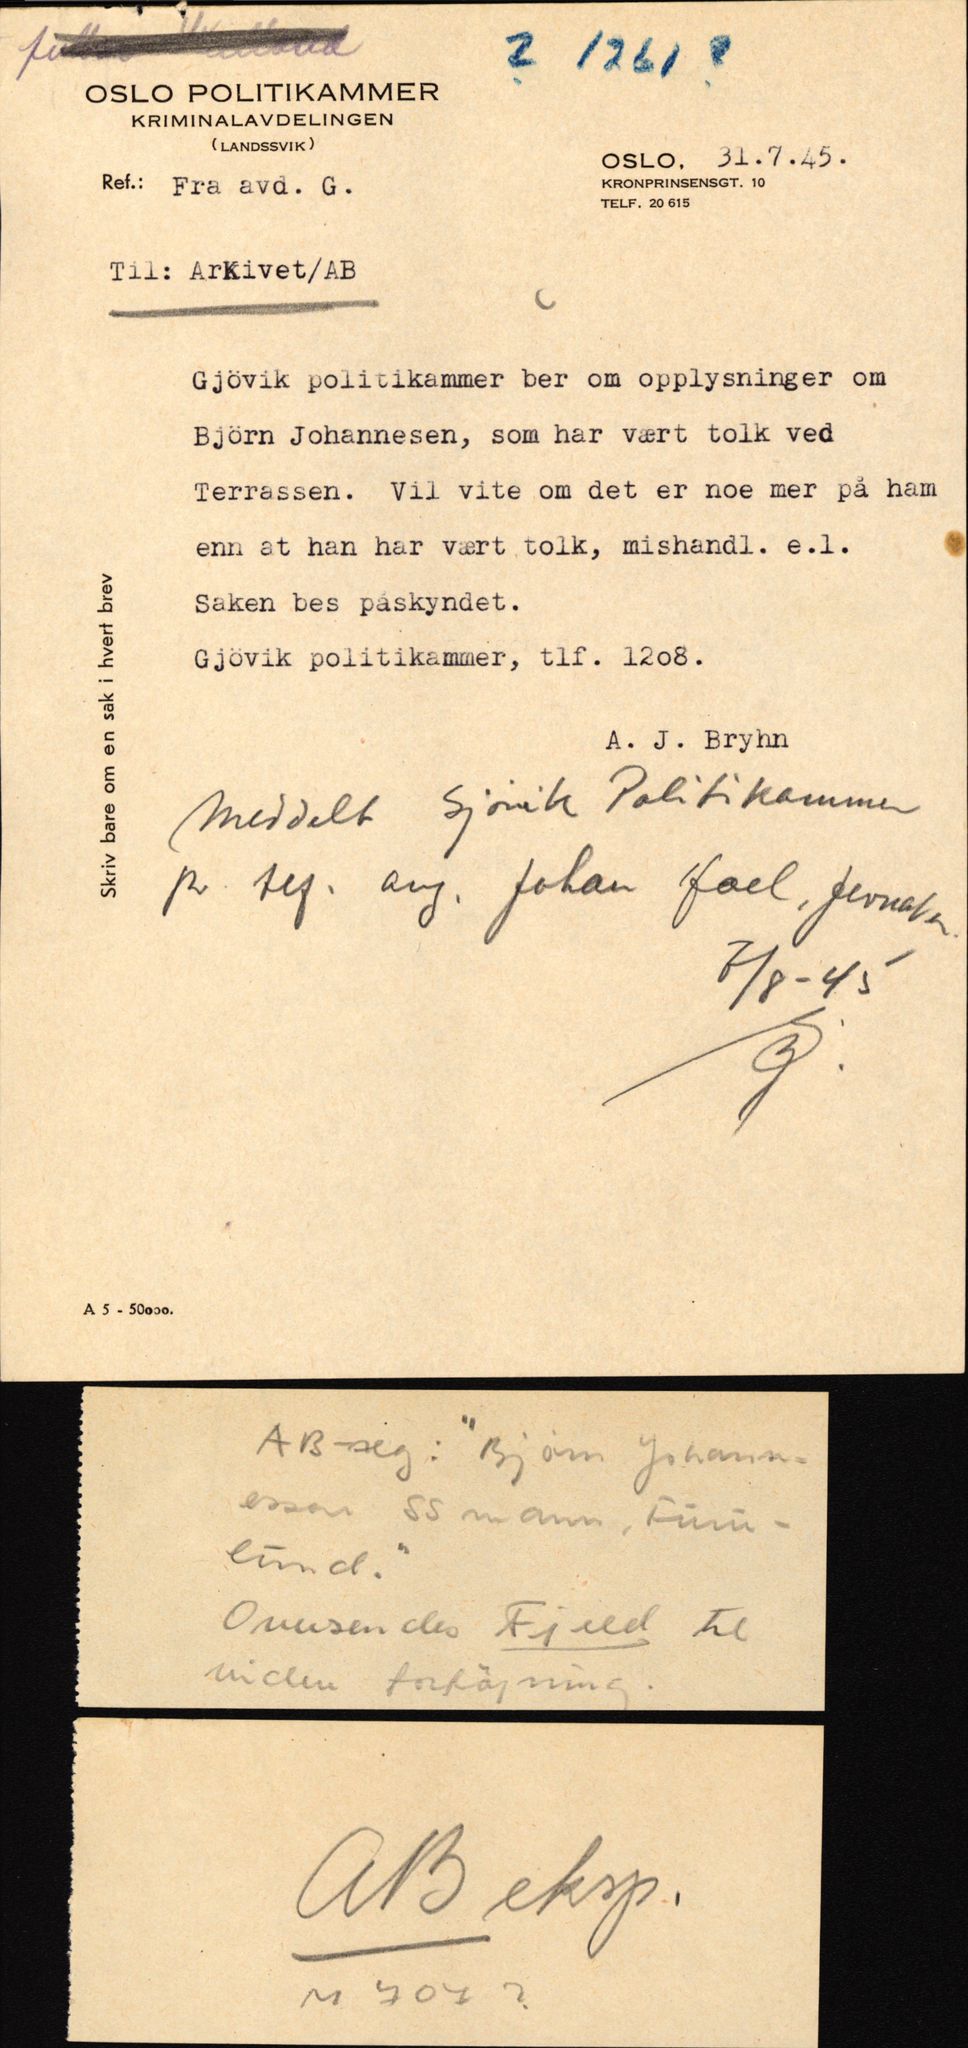 ? 1261 ?
OSLO POLITIKAMMER
KRIMINALAVDELINGEN
(LANDSSVIK)
OSLO, 31.7.45.
KRONPRINSENSGT. 10
TELF. 20 615
Ref.: Fra avd. G.
Til: ArKivet/AB
Gjövik politikammer ber om opplysninger om
Björn Johannesen, som har vært tolk ved
Terrassen. Vil vite om det er noe mer på ham
enn at han har vært tolk, mishandl. e.l.
Saken bes påskyndet.
Gjövik politikammer, tlf. 12o8.
A. J. Bryhn
Skriv bare om en sak i hvert brev
Meddelt Gjövik Politikammer
pr. ang. Johan
7/8-45
A 5 - 50000.
AB-reg: "Bjørn Johann-
essen SS mann, Furu-
lund."
Oversendes Fjeld til
videre forföyning.
AB eksp.